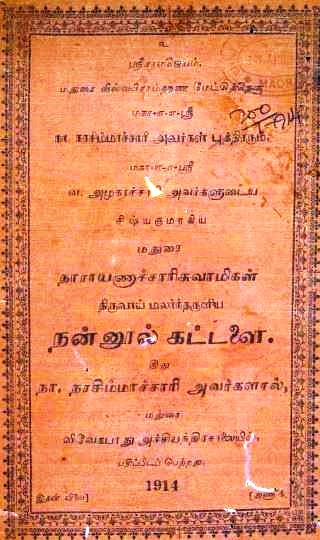 உ
ஸ்ரீராமஜெயம்.
மதுரை
மகா-ள-ள-ஸ்ரீ
நா. நரசிம்மாச்சாரி அவர்கள் புத்திரரும்,
மகா-ள-ள-ஸ்ரீ
அவர்களுடைய
சிஷ்யருமாகிய
மதுரை
நாராயணாச்சாரிசுவாமிகள்
திருவாய் மலர்ந்தருளிய
நன்னூல் கட்டளை.
இது
நா. நரசிம்மாச்சாரி அவர்களால்,
மதுரை
விவேகபாநு அச்சியந்திரசாலையில்
பதிப்பிடப் பெற்றது.
1914
இதன் விலை] [அணா